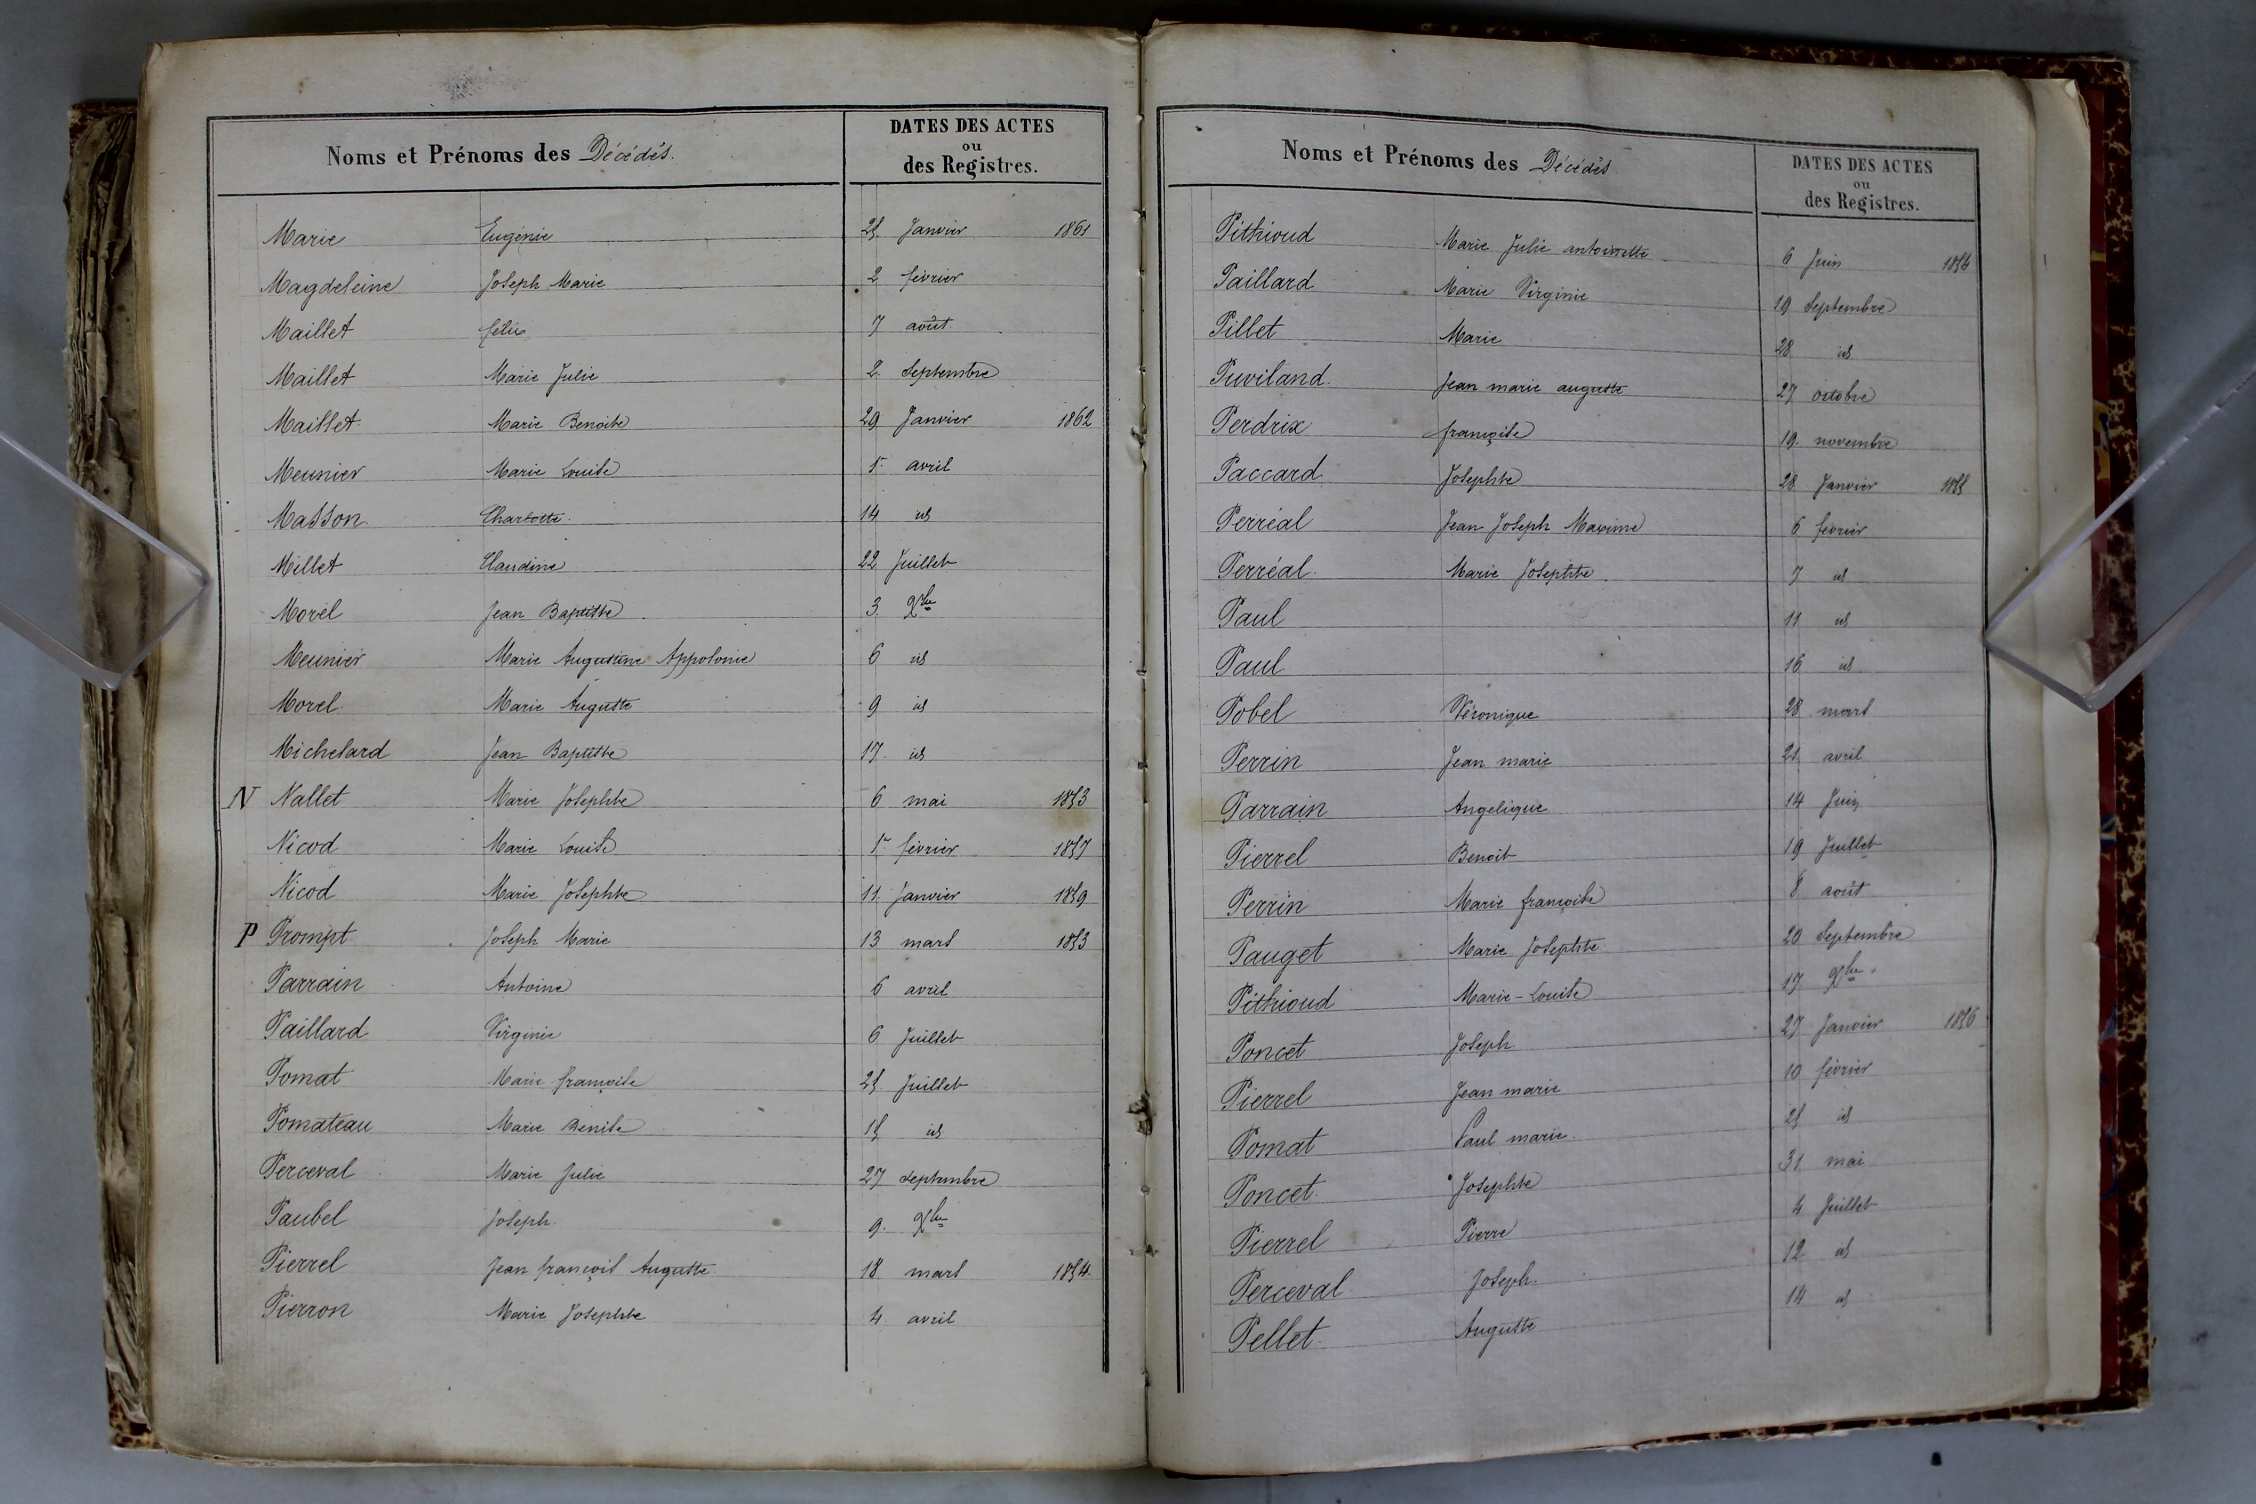 Noms et Prénoms des Décédés.
DATES DES ACTES
ou
des Registres.
Marie Eugénie 25 Janvier 1861
Magdeleine Joseph Marie 2 février
Maillet félix 7 août
Maillet Marie Julie 2 Septembre
Maillet Marie Benoite 29 Janvier 1862
Meunier Marie Louise 1er avril
Masson Charlotte 14 id
Millet Claudine 22 Juillet
Morel Jean Baptiste 3 Xbre
Meunier Marie Augustine Appolonie 6 id
Morel Marie Auguste 9 id
Michelard Jean Baptiste 17 id
N Nallet Marie Josephte 6 mai 1853
Nicod Marie Louise 1er février 1857
Nicod Marie Josephte 11 Janvier 1859
P Prompt Joseph Marie 13 mars 1853
Parrain Antoine 6 avril
Paillard Virginie 6 Juillet
Pomat Marie françoise 25 Juillet
Pomateau Marie Benite 15 id
Perceval Marie Julie 27 septembre
Paubel Joseph 9 Xbre
Pierrel Jean françois Auguste 18 mars 1854
Pierron Marie Josephte 4 avril
Noms et Prénoms des Décédés
DATES DES ACTES
ou
des Registres.
Pithioud Marie Julie antoinette 6 Juin 1854
Paillard Marie Virginie 19 Septembre
Pillet Marie 28 id
Puviland Jean marie auguste 27 octobre
Perdrix françoise 19 novembre
Paccard Josephte 28 Janvier 1855
Perréal Jean Joseph Maxime 6 février
Perréal Marie Josephte 7 id
Paul 11 id
Paul 16 id
Pobel Véronique 28 mars
Perrin Jean marie 21 avril
Parrain Angelique 14 Juin
Pierrel Benoit 19 Juillet
Perrin Marie françoise 8 août
Pauget Marie Josephte 20 Septembre
Pithioud Marie-Louise 17 Xbre
Poncet Joseph 27 Janvier 1856
Pierrel Jean marie 10 février
Pomat Paul marie 25 id
Poncet Josephte 31 mai
Pierrel Pierre 4 Juillet
Perceval Joseph 12 id
Pellet Auguste 14 id